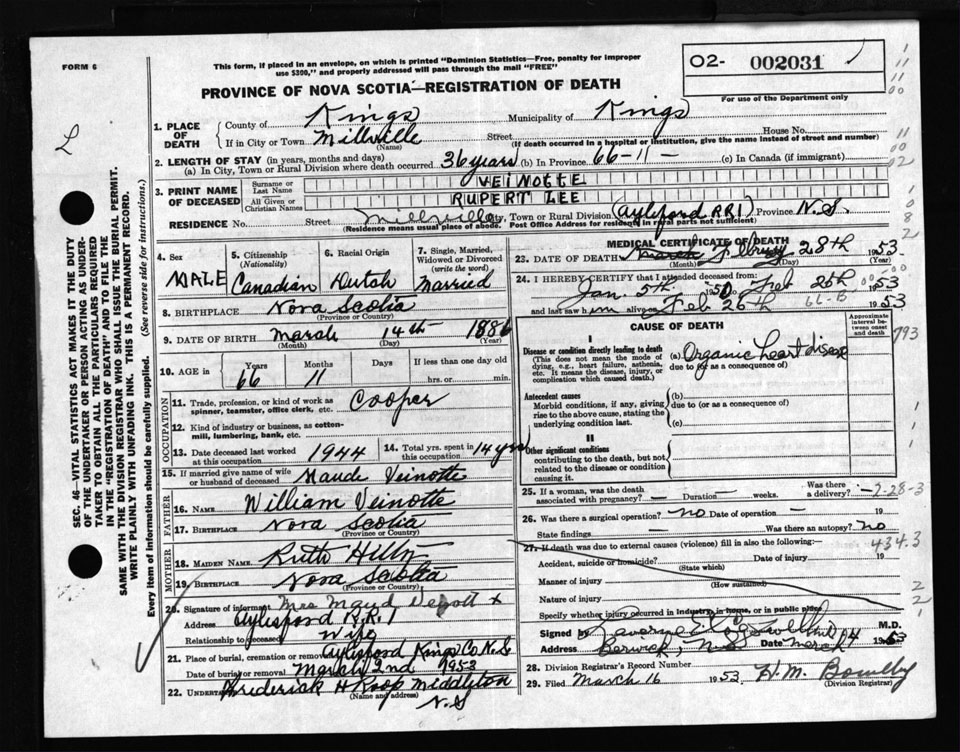 FORM 6
This form, if placed in an envelope, on which is printed "Dominion Statistics—Free, penalty for improper
use $300," and properly addressed will pass through the mail "FREE"
PROVINCE OF NOVA SCOTIA—REGISTRATION OF DEATH
O2- 002031
For use of the Department only
L
SEC. 46—VITAL STATISTICS ACT MAKES IT THE DUTY
OF THE UNDERTAKER OR PERSON ACTING AS UNDER-
TAKER TO OBTAIN ALL THE PARTICULARS REQUIRED
IN THE "REGISTRATION OF DEATH" AND TO FILE THE
SAME WITH THE DIVISION REGISTRAR WHO SHALL ISSUE THE BURIAL PERMIT.
WRITE PLAINLY WITH UNFADING INK. THIS IS A PERMANENT RECORD.
Every item of information should be carefully supplied. (See reverse side for instructions.)
1. PLACE OF DEATH
County of Kings Municipality of Kings
If in City or Town Millville Street House No.
(Name) (If death occurred in a hospital or institution, give the name instead of street and number)
2. LENGTH OF STAY (in years, months and days)
(a) In City, Town or Rural Division where death occurred 36 years (b) In Province 66-11- (c) In Canada (if immigrant)
3. PRINT NAME OF DECEASED
Surname or Last Name VEINOTTE
All Given or Christian Names RUPERT LEE
RESIDENCE No. Street Millville City, Town or Rural Division (Aylesford RR1) Province N.S.
(Residence means usual place of abode. Post Office Address for residents in rural parts not sufficient)
4. Sex MALE
5. Citizenship (Nationality) Canadian
6. Racial Origin Dutch
7. Single, Married, Widowed or Divorced (write the word) Married
8. BIRTHPLACE Nova Scotia
(Province or Country)
9. DATE OF BIRTH March 14th 1886
(Month) (Day) (Year)
10. AGE in Years 66 Months 11 If less than one day old hrs. or min.
OCCUPATION
11. Trade, profession or kind of work as spinner, teamster, office clerk, etc. Cooper
12. Kind of industry or business, as cotton-mill, lumbering, bank, etc.
13. Date deceased last worked at this occupation 1944
14. Total yrs. spent in this occupation 14 yrs
15. If married give name of wife or husband of deceased Maude Veinotte
FATHER
16. Name William Veinotte
17. Birthplace Nova Scotia
(Province or Country)
MOTHER
18. MAIDEN NAME Ruth
19. BIRTHPLACE Nova Scotia
(Province or Country)
20. Signature of informant Mrs Maud x
Address Aylesford R.R. 1
Relationship to deceased Wife
21. Place of burial, cremation or removal Aylesford Kings Co N.S.
Date of burial or removal March 2nd 1953
22. Undertaker Frederick H Roop Middleton
(Name and address)
N.S
MEDICAL CERTIFICATE OF DEATH
23. DATE OF DEATH March 28th 1953
(Month) (Day) (Year)
24. I HEREBY CERTIFY that I attended deceased from:
Jan. 5th Feb 26th
and last saw him alive on Feb 26th 1953
CAUSE OF DEATH
Approximate interval between onset and death
I
Disease or condition directly leading to death
(This does not mean the mode of dying, e.g., heart failure, asthenia, etc. It means the disease, injury, or complication which caused death.)
(a) Organic heart disease
due to (or as a consequence of)
793
Antecedent causes
Morbid conditions, if any, giving rise to the above cause, stating the underlying condition last.
(b)
due to (or as a consequence of)
(c)
II
Other significant conditions
contributing to the death, but not related to the disease or condition causing it.
25. If a woman, was the death associated with pregnancy? — Duration — weeks. Was there a delivery? —
2-28-3
26. Was there a surgical operation? no Date of operation — 19
State findings Was there an autopsy? no
434.3
27. If death was due to external causes (violence) fill in also the following:—
Accident, suicide or homicide? Date of injury 19
(State which)
Manner of injury
(How sustained)
Nature of injury
Specify whether injury occurred in industry, in home, or in public place
Signed by M.D.
Address Berwick, N.S. Date March 4 1953
28. Division Registrar's Record Number
29. Filed March 16 1953 H.M. Bowlby
(Division Registrar)